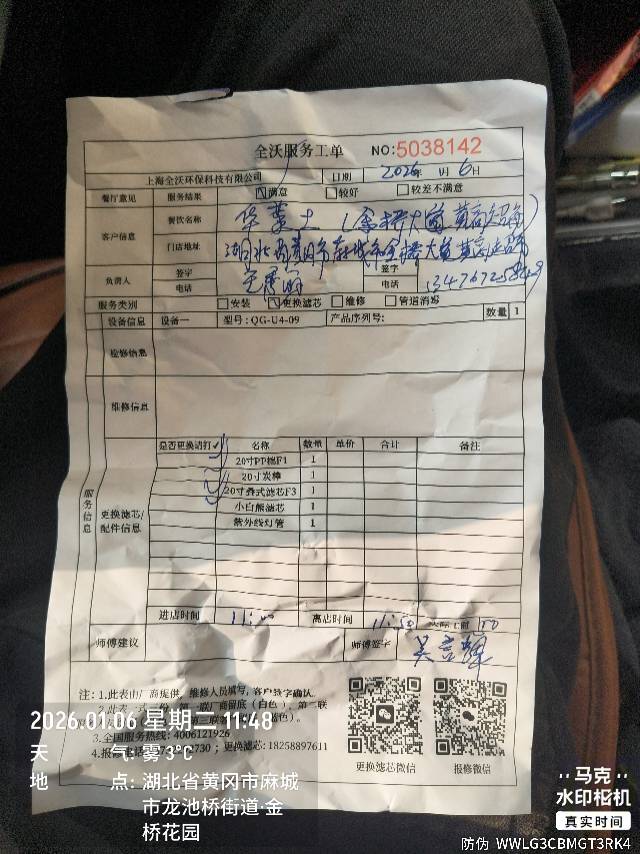 全沃服务工单 NO:5038142
上海全沃环保科技有限公司 日期 2026年 1月 6日
餐厅意见 服务结果 满意 较好 较差不满意
客户信息 餐饮名称 华莱士(金桥大道黄高超海)
门店地址 湖北省黄冈市麻城市金桥大道黄高
负责人 签字 签字
电话 电话
服务类别 安装 更换滤芯 维修 管道消毒
设备信息 设备一 型号:QG-U4-09 产品序列号: 数量 1
检修信息
维修信息
服务信息
更换滤芯/配件信息
是否更换请打✓ 名称 数量 单价 合计 备注
✓ 20寸PP棉F1 1
20寸炭棒 1
✓ 20寸叠式滤芯F3 1
小白熊滤芯 1
紫外线灯管 1
进店时间 11:20 离店时间 11:50
师傅建议 师傅签字 吴言辉
注:1.此表由厂商提供,维修人员填写,客户签字确认.
2.此表一式三份,第一联厂商留底(白色),第二联
3.全国服务热线:4006121926
更换滤芯:18258897611
更换滤芯微信 报修微信
2026.01.06 星期二 11:48
天气:雾 3℃
地点:湖北省黄冈市麻城
市龙池桥街道·金
桥花园
马克
水印相机
真实时间
防伪 WWLG3CBMGT3RK4